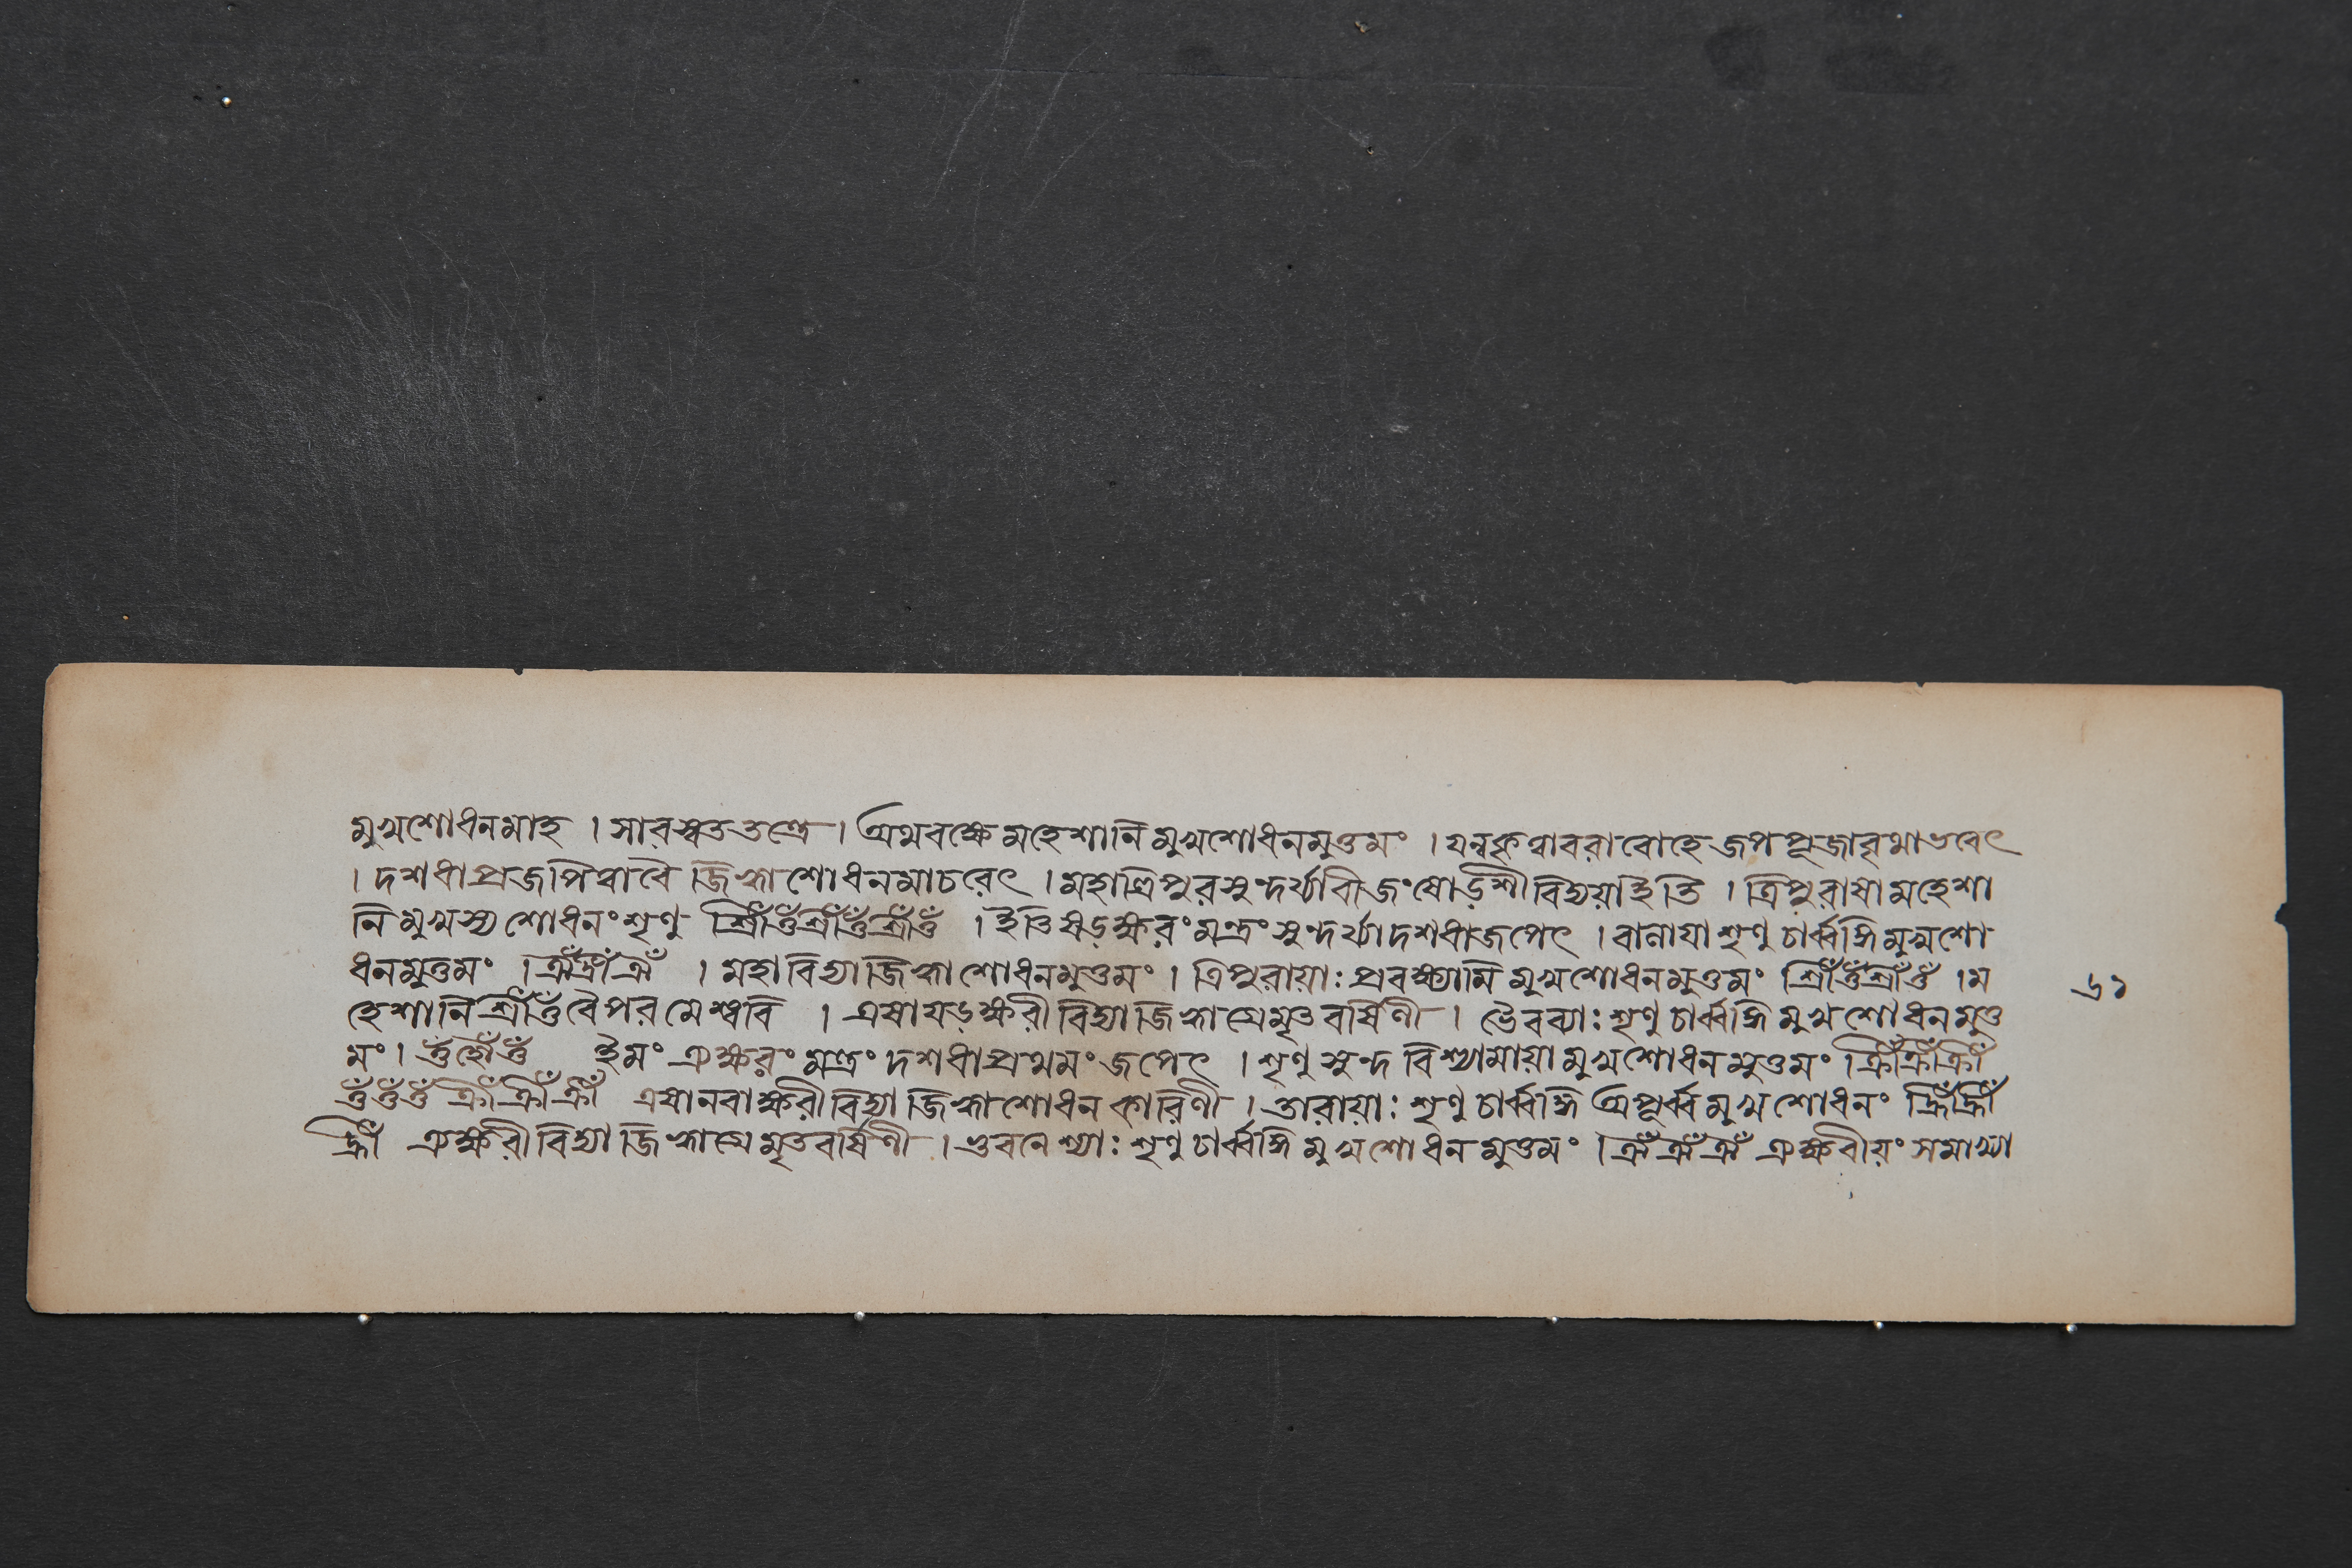 মুখশোধনমাহ । সারস্বততন্ত্রে । অথবক্ষেমহেশানিমুখশোধনমুত্তমং । যন্বকৃত্বাবরারোহে জপপূজাবৃথাভবেৎ
। দশধাপ্রজপিত্বাবৈ জিহ্বাশোধনমাচরেৎ । মহাত্রিপুরসুন্দর্য্যাবীজং ষোড়শীবিদ্যয়াইতি । ত্রিপুরাষামহেশা
নিমুখস্যশোধনংশৃণু শ্রীঁওঁশ্রীঁওঁশ্রীঁওঁ । ইতিষড়ক্ষরংমন্ত্রং সুন্দর্য্যাদশধাজপেৎ । বালায়াশৃণু চার্ব্বঙ্গিমুখশো
ধনমুত্তমং । ঐঁহ্রীঁঐঁ । মহাবিদ্যাজিহ্বাশোধনমুত্তমং । ত্রিপুরায়াঃপ্রবক্ষ্যামিমুখশোধনমুত্তমং শ্রীঁওঁশ্রীঁওঁ । ম
হেশানিশ্রীঁওঁবৈপরমেশ্বরি । এষাষড়ক্ষরীবিদ্যাজিহ্বাগ্রেমৃতবর্ষিণী । ভৈরব্যাঃশৃণুচার্ব্বঙ্গিমুখশোধনমুত্ত
মং । ওঁহ্সৌঁওঁ ইমং ত্র্যক্ষরং মন্ত্রং দশধাপ্রথমং জপেৎ । শৃণুসুন্দ বিশ্যামায়ামুখশোধনমুত্তমং । ক্রীঁক্রীঁক্রীঁ
ওঁওঁওঁ ক্রীঁক্রীঁক্রীঁ এষানবাক্ষরীবিদ্যাজিহ্বাশোধনকারিণী । তারায়াঃশৃণুচার্ব্বঙ্গি অপূর্ব্বমুখশোধনং হ্রীঁহ্রীঁ
হ্রীঁ ত্র্যক্ষরীবিদ্যাজিহ্বাগ্রেমৃতবর্ষিণী । ভুবনেশ্যাঃশৃণুচার্ব্বঙ্গিমুখশোধনমুত্তমং । ঐঁঐঁঐঁ ত্র্যক্ষরীয়ং সমাখ্যা
৬১